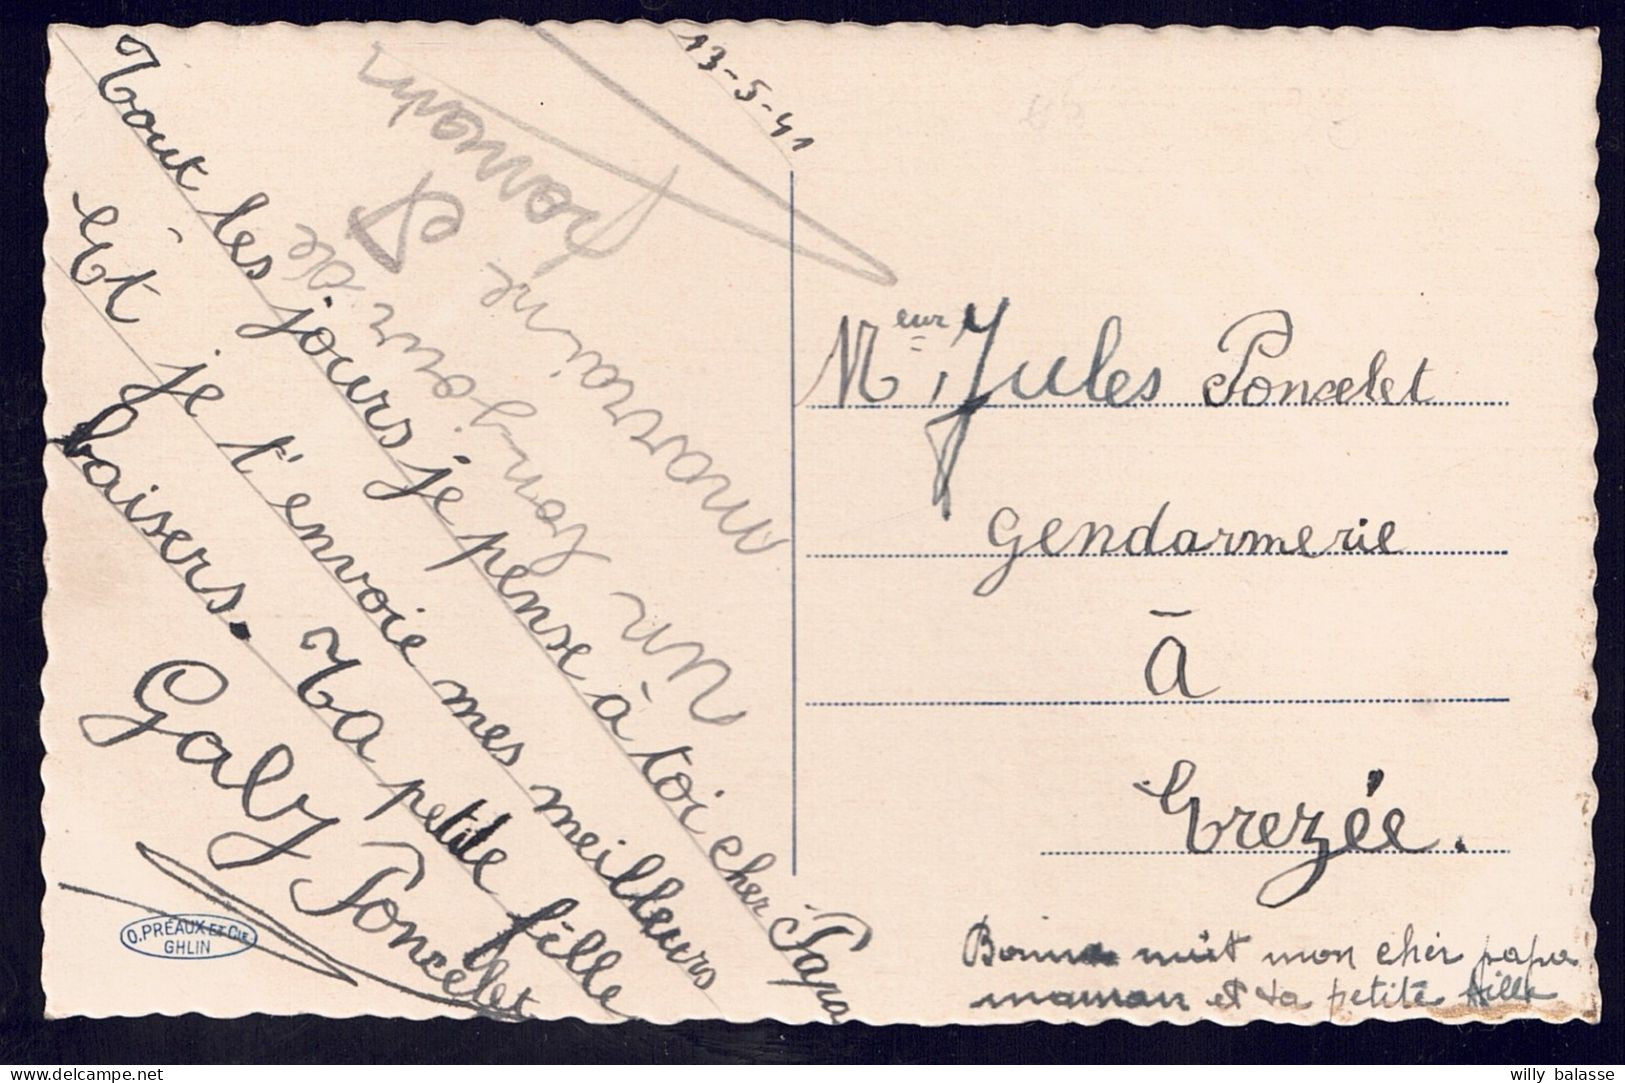 13-5-41
Tout les jours je pense à toi cher Papa
Et je t'envoie mes meilleurs
baisers. Ta petite fille
Galy Poncelet
Un bonjour de
marraine et
parrain
O. PRÉAUX ET CIE
GHLIN
Meur Jules Poncelet
Gendarmerie
à
Erezée.
Bonne nuit mon cher papa
maman et ta petite fille
willy balasse